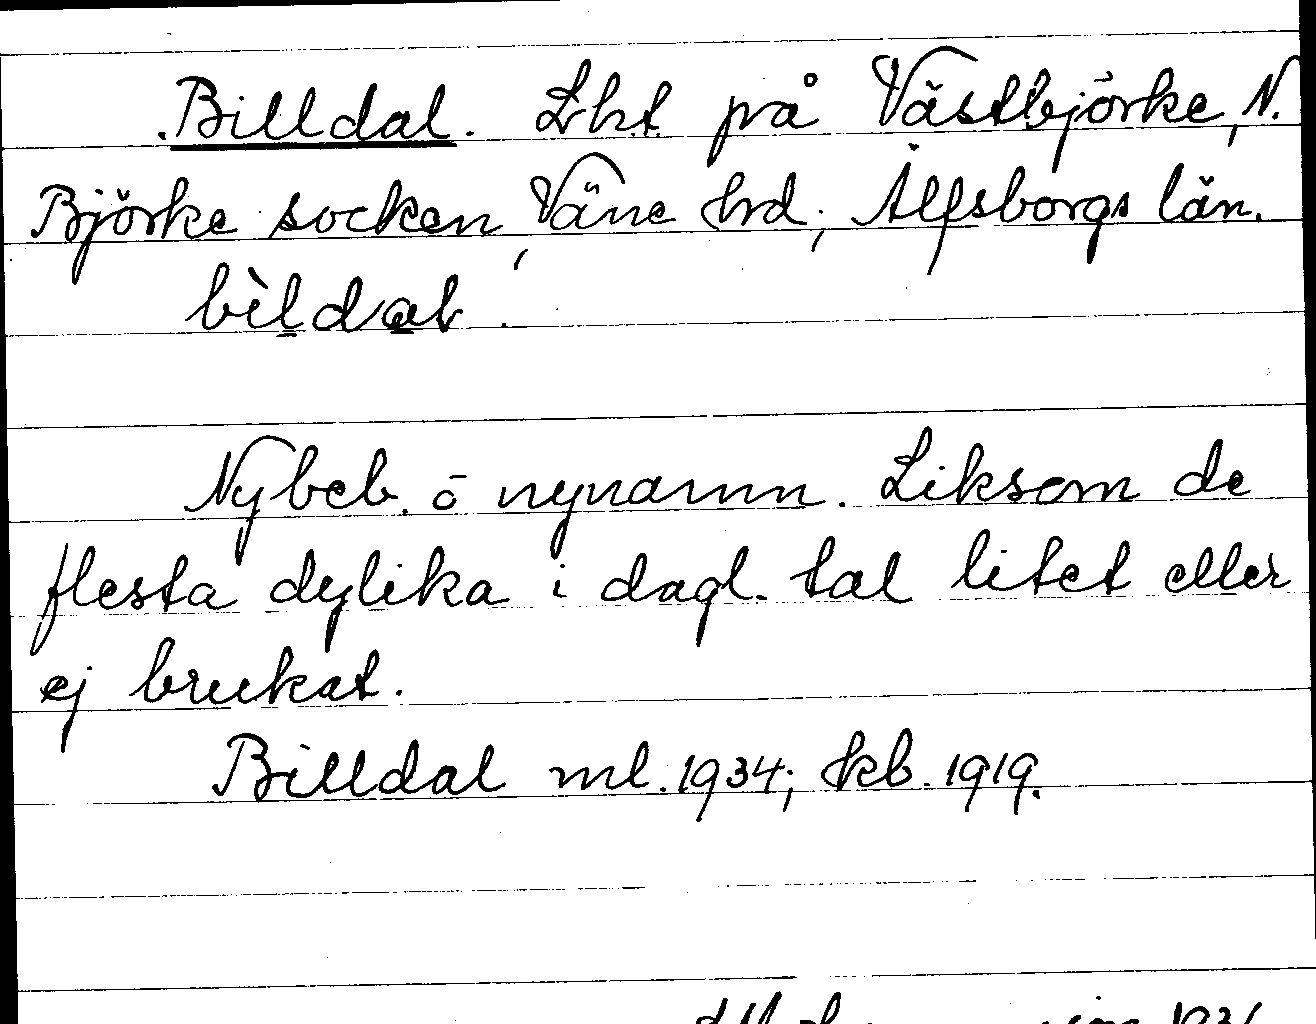 Billdal. Lht på Västbjörke, N.
Björke socken, Väne hd, Älfsborgs län.
bìldal.
Nybeb. o nynamn. Liksom de
flesta dylika i dagl. tal litet eller
ej brukat.
Billdal ml. 1934; kb. 1919.